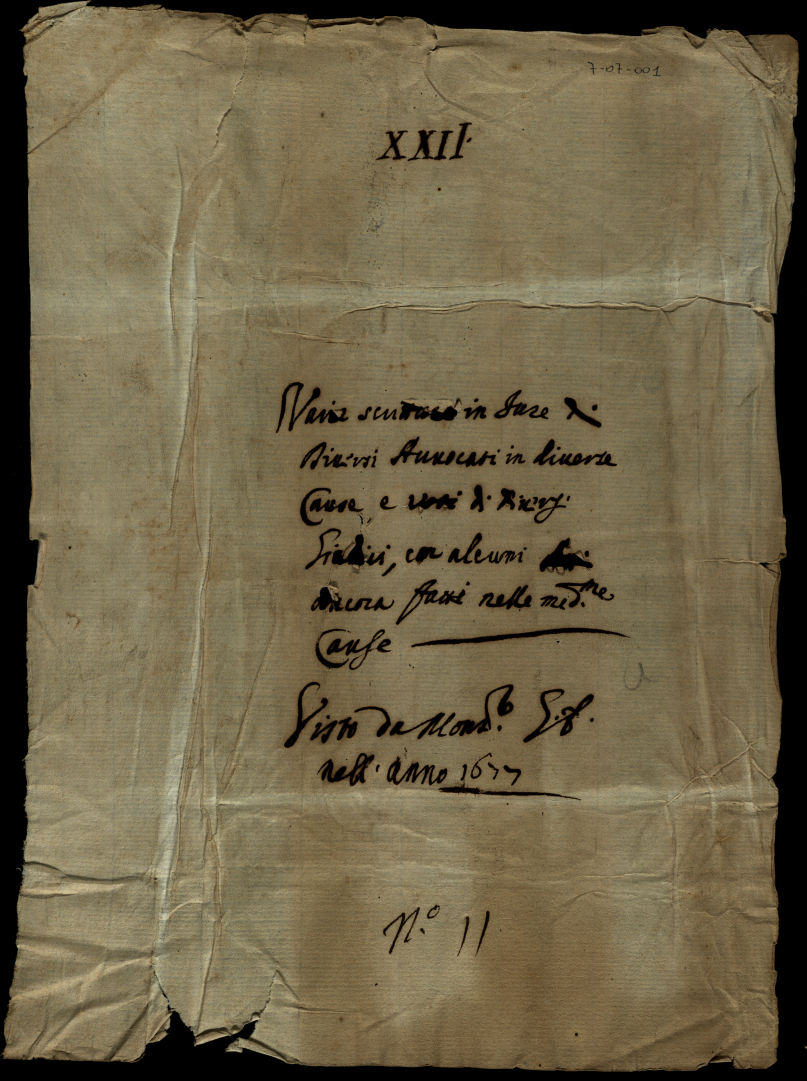 7-07-001
XXII.
Varie scritture in Jure di
Diversi Auuocati in diuerse
Cause, e uoti di Diuersi
Giudici, con alcuni
ancora fatti nelle med.me
Cause
Visto da
nell' anno 1677
N.o 11